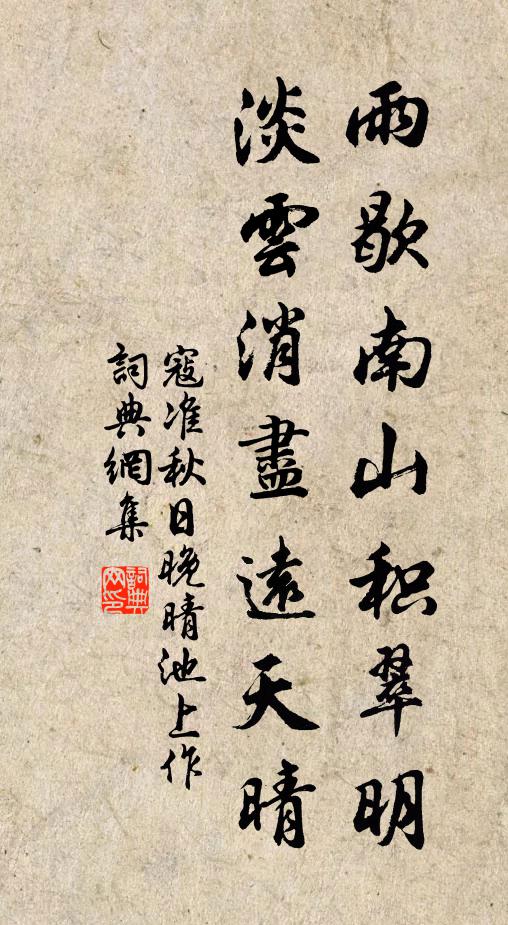 雨歇南山积翠明
淡雲消盡遠天晴
寇准秋日晚晴池上作
詞典網集
詞典
网印